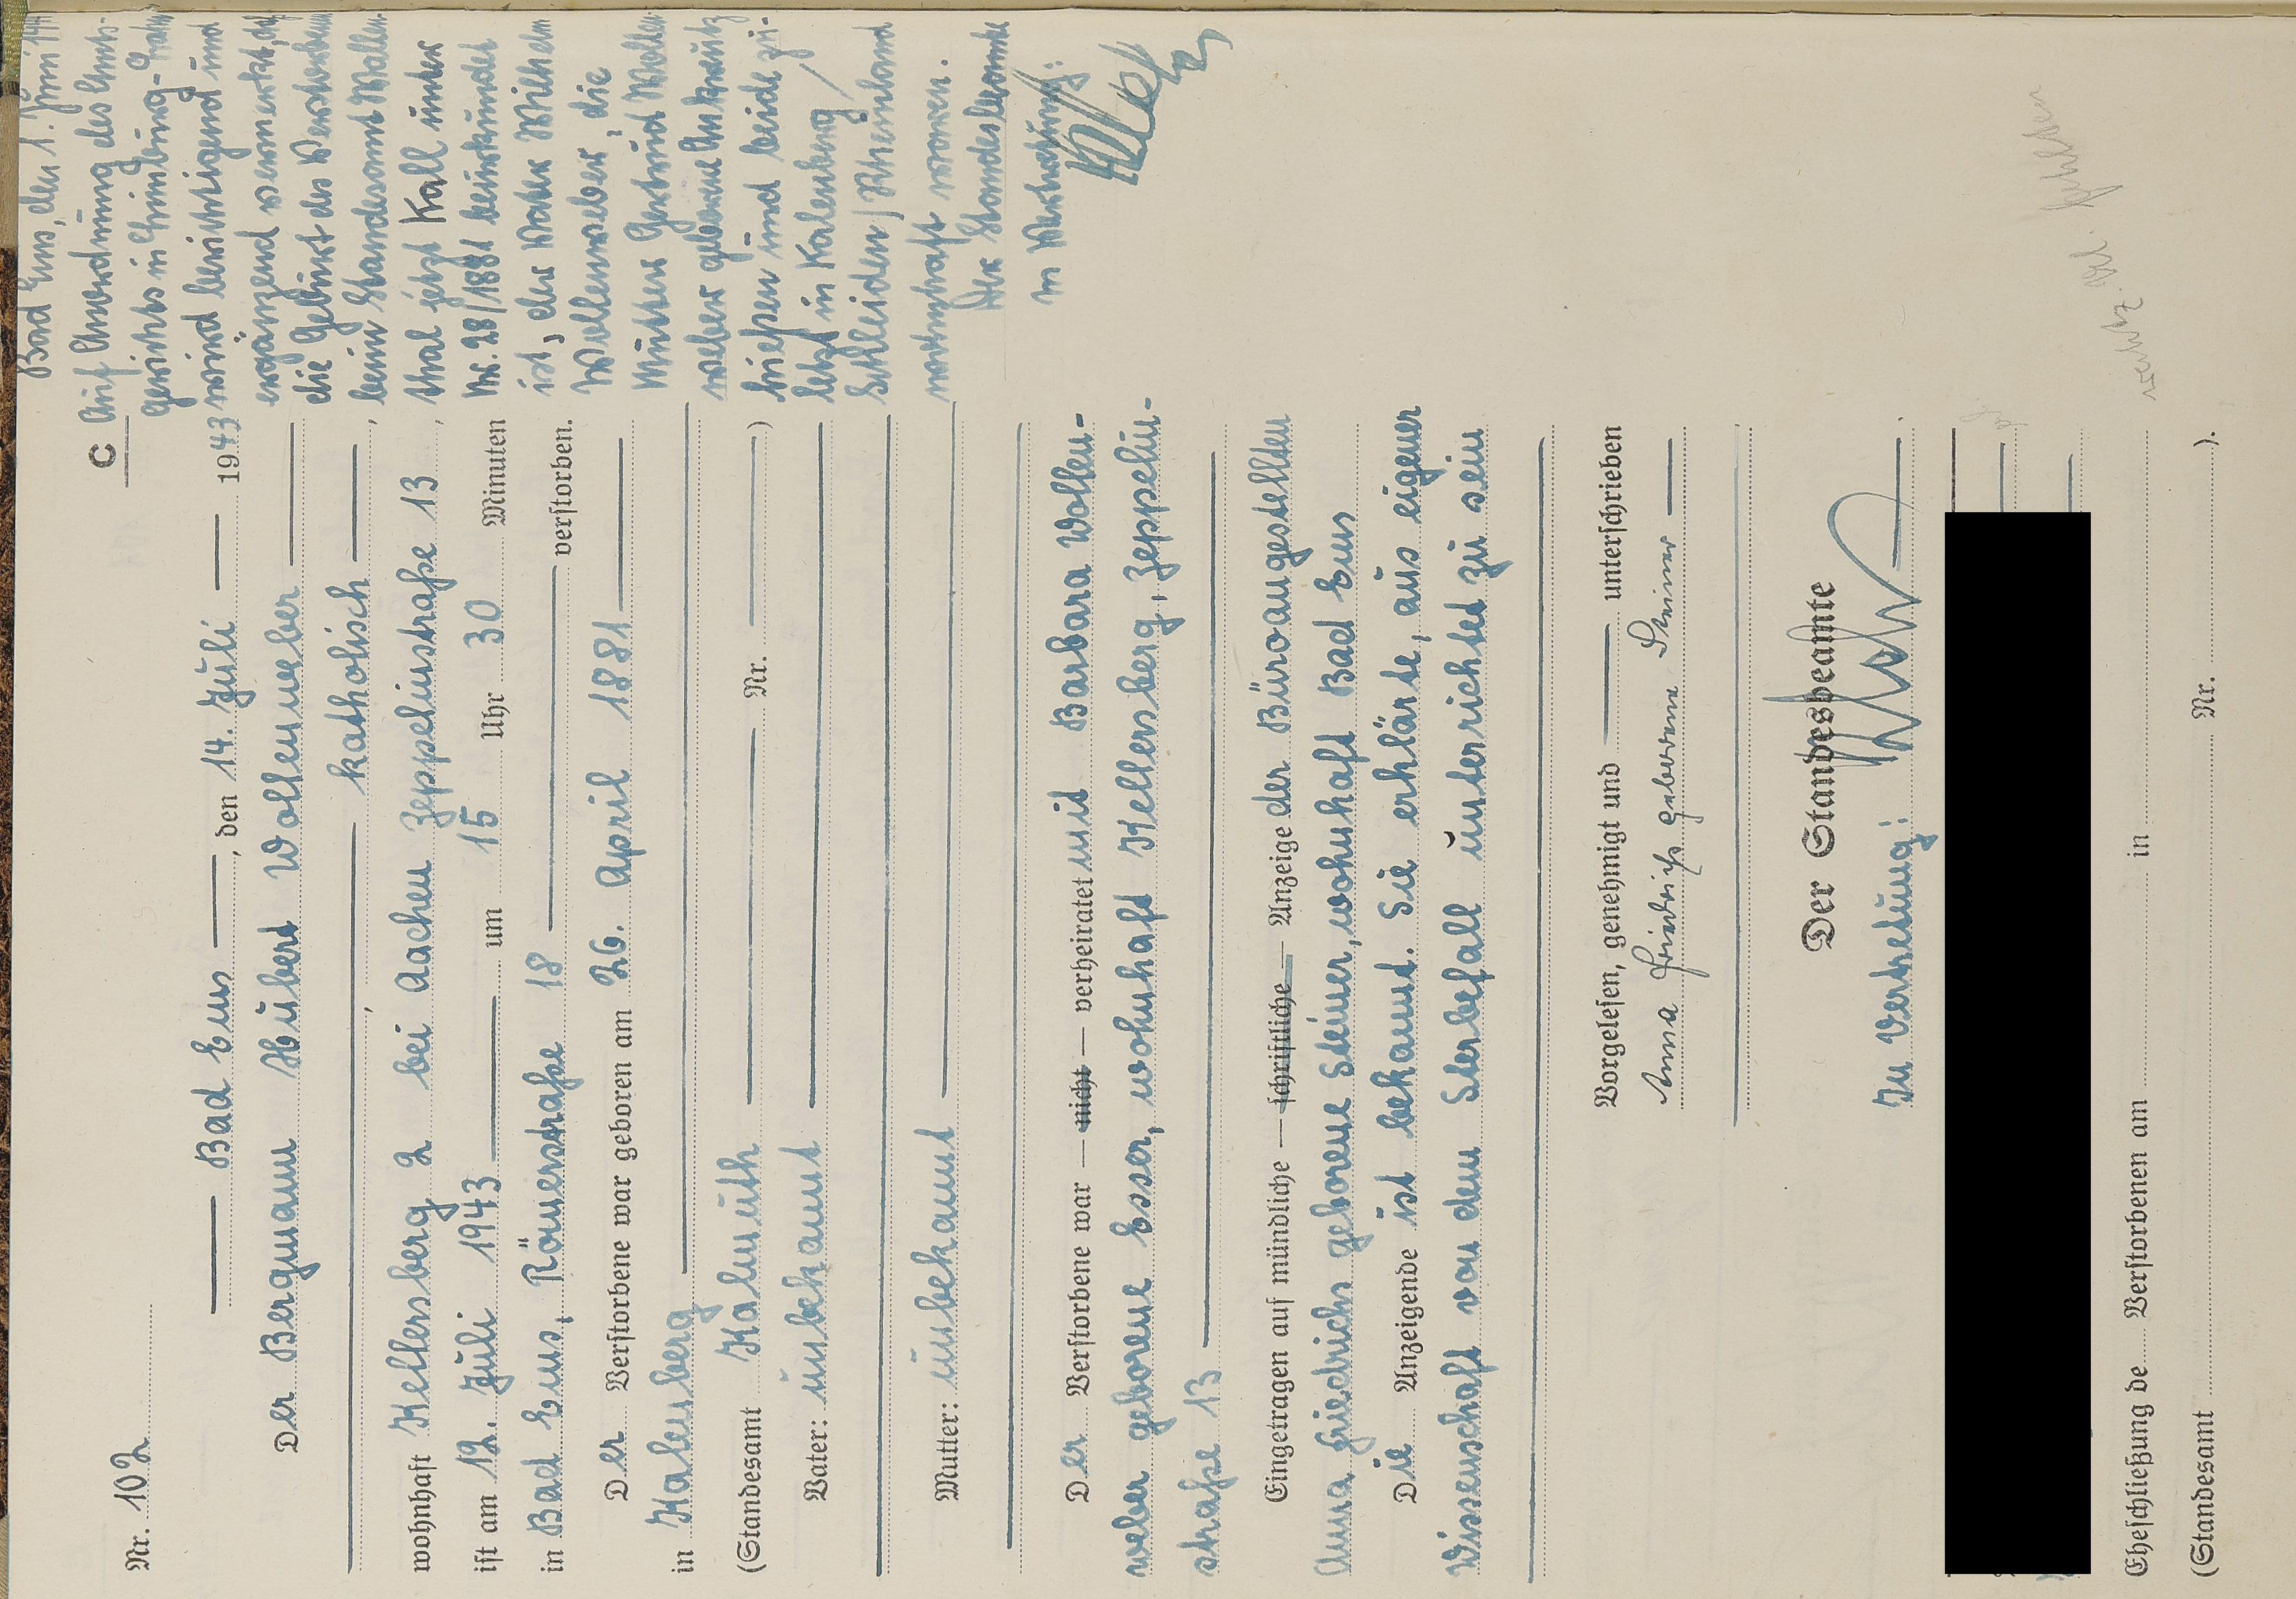 Nr. 102
C
Bad Ems, den 14. Juli 1943
Der Bergmann Hubert Wollenweber
katholisch,
wohnhaft Kellersberg 2 bei Aachen Zeppelinstraße 13,
ist am 12. Juli 1943 um 15 Uhr 30 Minuten
in Bad Ems, Römerstraße 18 verstorben.
Der Verstorbene war geboren am 26. April 1881
in Kalenberg
(Standesamt Kalmuth Nr. )
Vater: unbekannt
Mutter: unbekannt
Der Verstorbene war — nicht — verheiratet mit Barbara Wollen-
weber geborene Esser, wohnhaft Kellersberg, Zeppelin-
straße 13
Eingetragen auf mündliche — schriftliche — Anzeige der Büroangestellten
Anna Friedrichs geborene Steiner, wohnhaft Bad Ems
Die Anzeigende ist bekannt. Sie erklärte, aus eigener
Wissenschaft von dem Sterbefall unterrichtet zu sein
Vorgelesen, genehmigt und unterschrieben
Anna Friedrichs geborene Steiner
Der Standesbeamte
In Vertretung:
Eheschließung de Verstorbenen am in
(Standesamt Nr. ).
Bad Ems, den 1. Juni 1944
Auf Anordnung des Amts-
gerichts in
wird berichtigend und
ergänzend vermerkt, daß
die Geburt des Verstorbenen
beim Standesamt Wallen-
thal jetzt Kall unter
Nr. 28/1881 beurkundet
ist, der Vater Wilhelm
Wollenweber, die
Mutter Gertrud Wollen-
weber geborene
hießen und beide zu-
letzt in Kalenberg
Schleiden/Rheinland
wohnhaft waren.
Der Standesbeamte
In Vertretung: